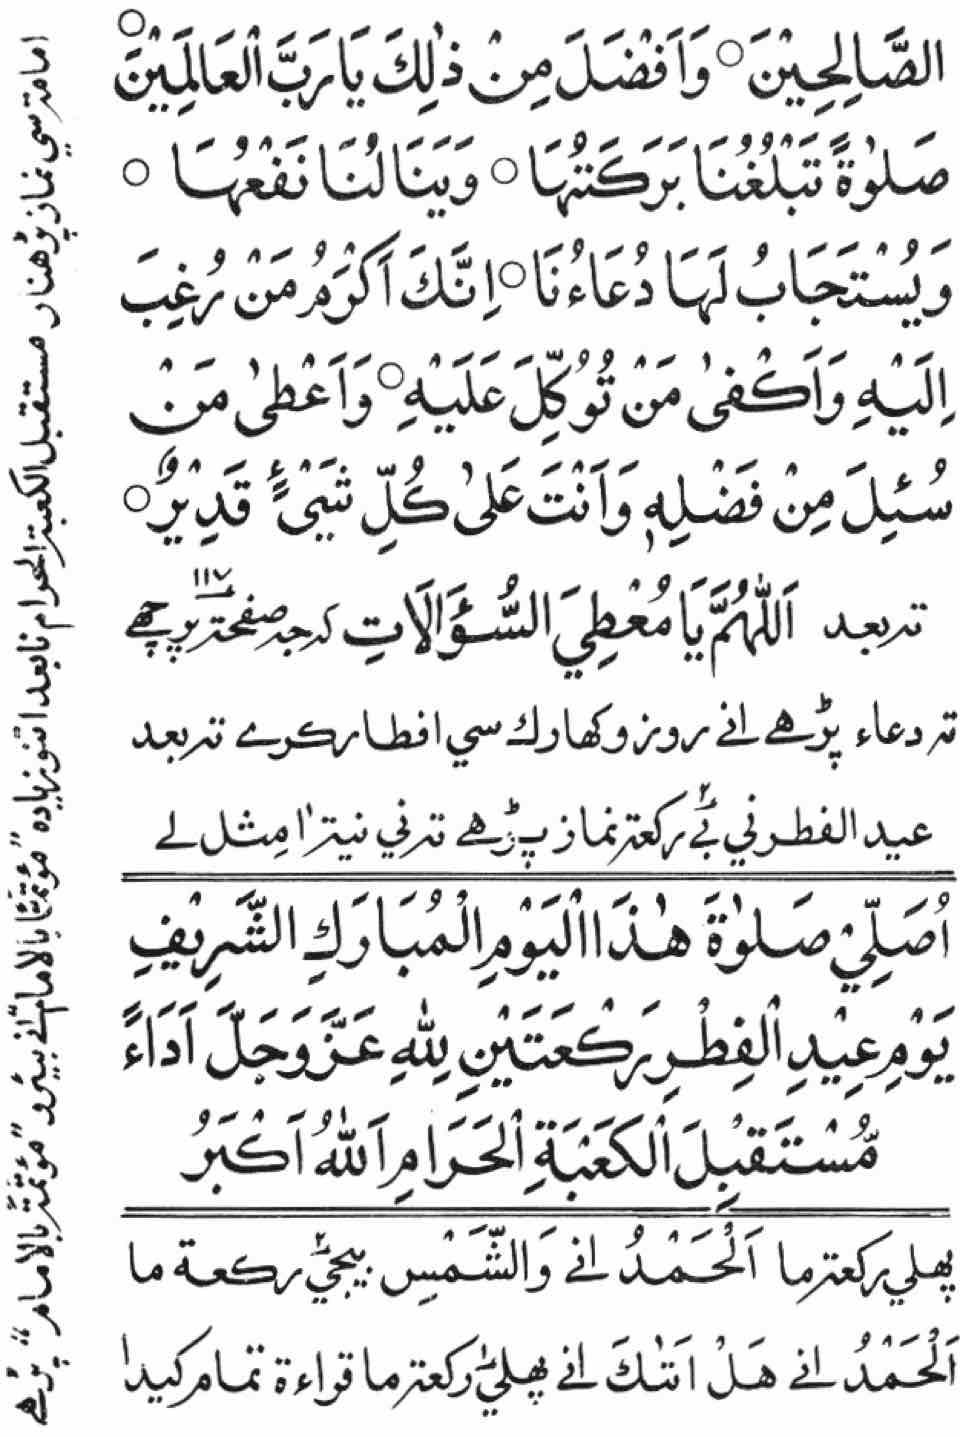 الصَّالِحِيْنَ ○ وَاَفْضَلَ مِنْ ذٰلِكَ يَا رَبَّ الْعَالَمِيْنَ ○
صَلٰوةً تَبْلُغُنَا بَرَكَتُهَا ○ وَيَنَالُنَا نَفْعُهَا ○
وَيُسْتَجَابُ لَهَا دُعَاءُنَا ○ اِنَّكَ اَكْرَمُ مَنْ رُغِبَ
اِلَيْهِ وَاَكْفىٰ مَنْ تُوُكِّلَ عَلَيْهِ ○ وَاَعْطىٰ مَنْ
سُئِلَ مِنْ فَضْلِهٖ وَاَنْتَ عَلىٰ كُلِّ شَيْءٍ قَدِيْرٌ ○
تہ بعد اَللّٰهُمَّ يَا مُعْطِيَ السُّؤَالَاتِ كہ جہ صفحتہ ١١٧ پر چھے
تہ دعاء پڑھے انے روزو كھارك سي افطار كرے تہ بعد
عيد الفطر ني بٔے ٢ ركعتہ نماز پڑھے تہ ني نيتہ ا مثل لے
اُصَلِّيْ صَلٰوةَ هٰذَا الْيَوْمِ الْمُبَارَكِ الشَّرِيْفِ
يَوْمِ عِيْدِ الْفِطْرِ رَكْعَتَيْنِ لِلّٰهِ عَزَّ وَجَلَّ اَدَاءً
مُّسْتَقْبِلَ الْكَعْبَةِ الْحَرَامِ اَللّٰهُ اَكْبَرُ
پهلي ركعتہ ما اَلْحَمْدُ انے وَالشَّمْسِ بيجي ركعة ما
اَلْحَمْدُ انے هَلْ اَتٰىكَ انے پهلي ركعتہ ما قراءة تمام كيدا
امامتہ سي نماز پڑهنار مستقبل الكعبة الحرام نا بعد اتنو زياده "مؤتمًّا بالامام" انے بيرو "مؤتمة بالامام" پڑے